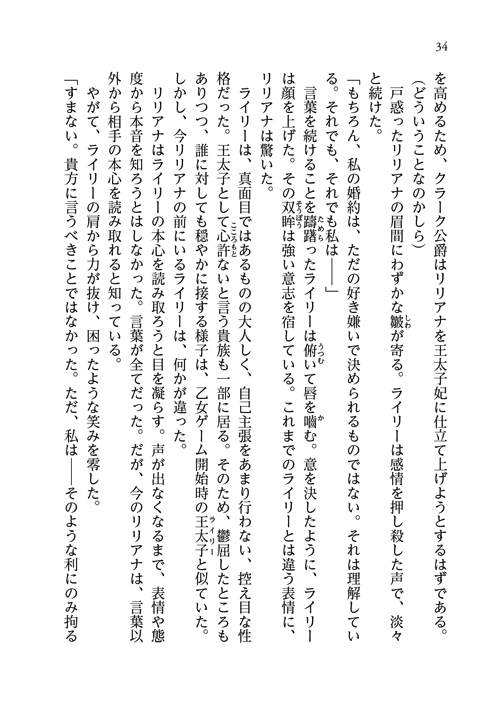 34
を高めるため、クラーク公爵はリリアナを王太子妃に仕立て上げようとするはずである。
（どういうことなのかしら）
戸惑ったリリアナの眉間にわずかな皺が寄る。ライリーは感情を押し殺した声で、淡々
と続けた。
「もちろん、私の婚約は、ただの好き嫌いで決められるものではない。それは理解してい
る。それでも、それでも私は――」
言葉を続けることを躊躇ったライリーは俯いて唇を嚙む。意を決したように、ライリー
は顔を上げた。その双眸は強い意志を宿している。これまでのライリーとは違う表情に、
リリアナは驚いた。
ライリーは、真面目ではあるものの大人しく、自己主張をあまり行わない、控え目な性
格だった。王太子として心許ないと言う貴族も一部に居る。そのため、鬱屈したところも
ありつつ、誰に対しても穏やかに接する様子は、乙女ゲーム開始時の王太子と似ていた。
しかし、今リリアナの前にいるライリーは、何かが違った。
リリアナはライリーの本心を読み取ろうと目を凝らす。声が出なくなるまで、表情や態
度から本音を知ろうとはしなかった。言葉が全てだった。だが、今のリリアナは、言葉以
外から相手の本心を読み取れると知っている。
やがて、ライリーの肩から力が抜け、困ったような笑みを零した。
「すまない。貴方に言うべきことではなかった。ただ、私は――そのような利にのみ拘る